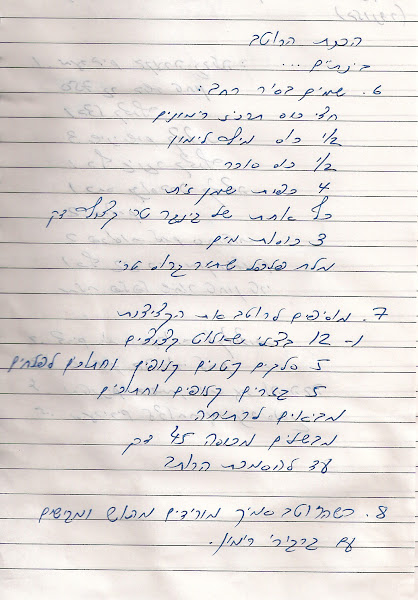 הכנת הרוטב
בינתיים...
6. שמים בסיר רחב:
חצי כוס תרכיז רימונים
1/2 כוס מיץ לימון
1/2 כוס סוכר
4 כפיות שמן זית
כף אחת של ג'ינג'ר טרי קצוץ דק
3 כוסות מים
מלח פלפל שחור גרוס טרי
7. מוסיפים לרוטב את הקציצות
ו- 12 בצלי שאלוט קצוצים
5 סלקים קטנים קלופים וחתוכים לפלחים
5 גזרים קלופים וחתוכים
מביאים לרתיחה
מבשלים מכוסה 45 דק
עד להסמכת הרוטב
8. כשהרוטב סמיך מורידים מהאש ומגישים
עם גרגירי רימון.